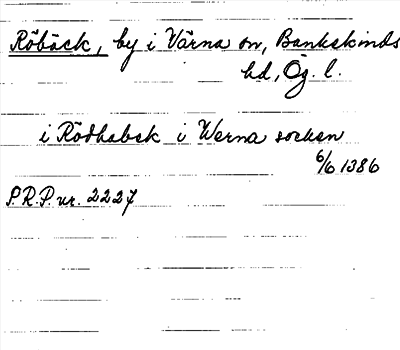 Röbäck, by i Värna sn, Bankekinds
hd, Ög. l.
i Rödhabek i Werna socken
6/6 1386
S.R.P. nr. 2227